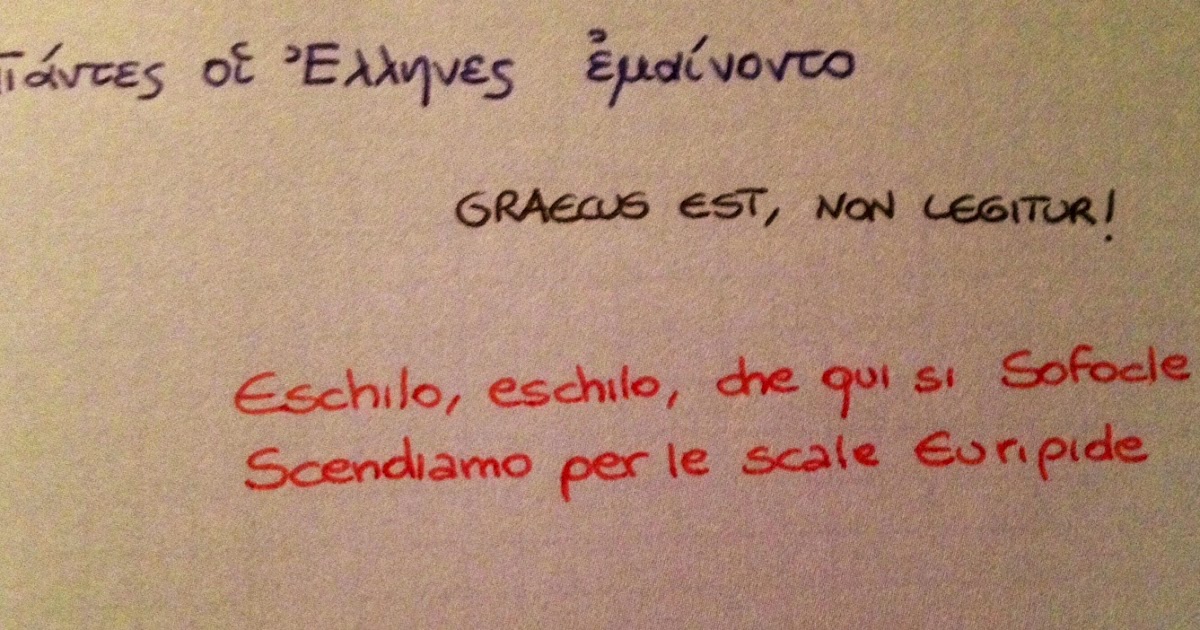 Πάντες οἱ Ἕλληνες ἐμαίνοντο
GRAECUS EST, NON LEGITUR!
Eschilo, eschilo, che qui si Sofocle
Scendiamo per le scale Euripide